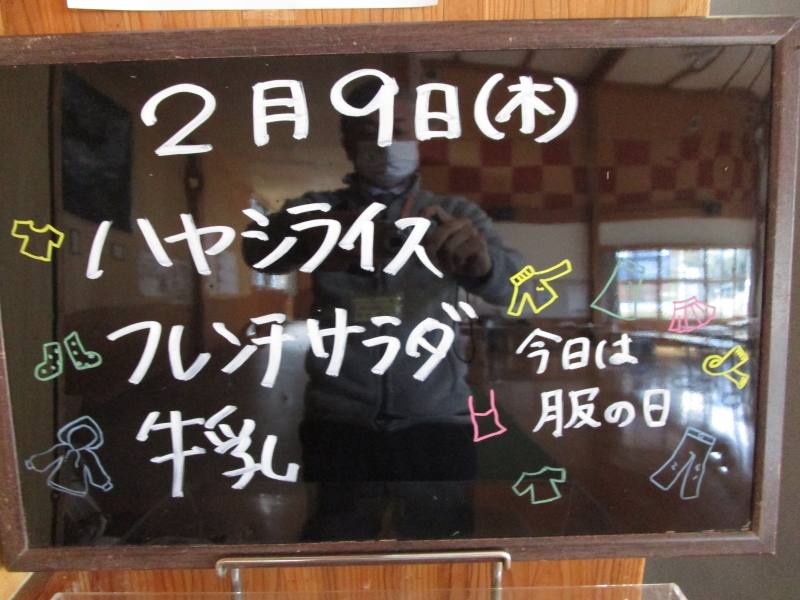 2月9日(木)
ハヤシライス
フレンチサラダ
牛乳
今日は
服の日